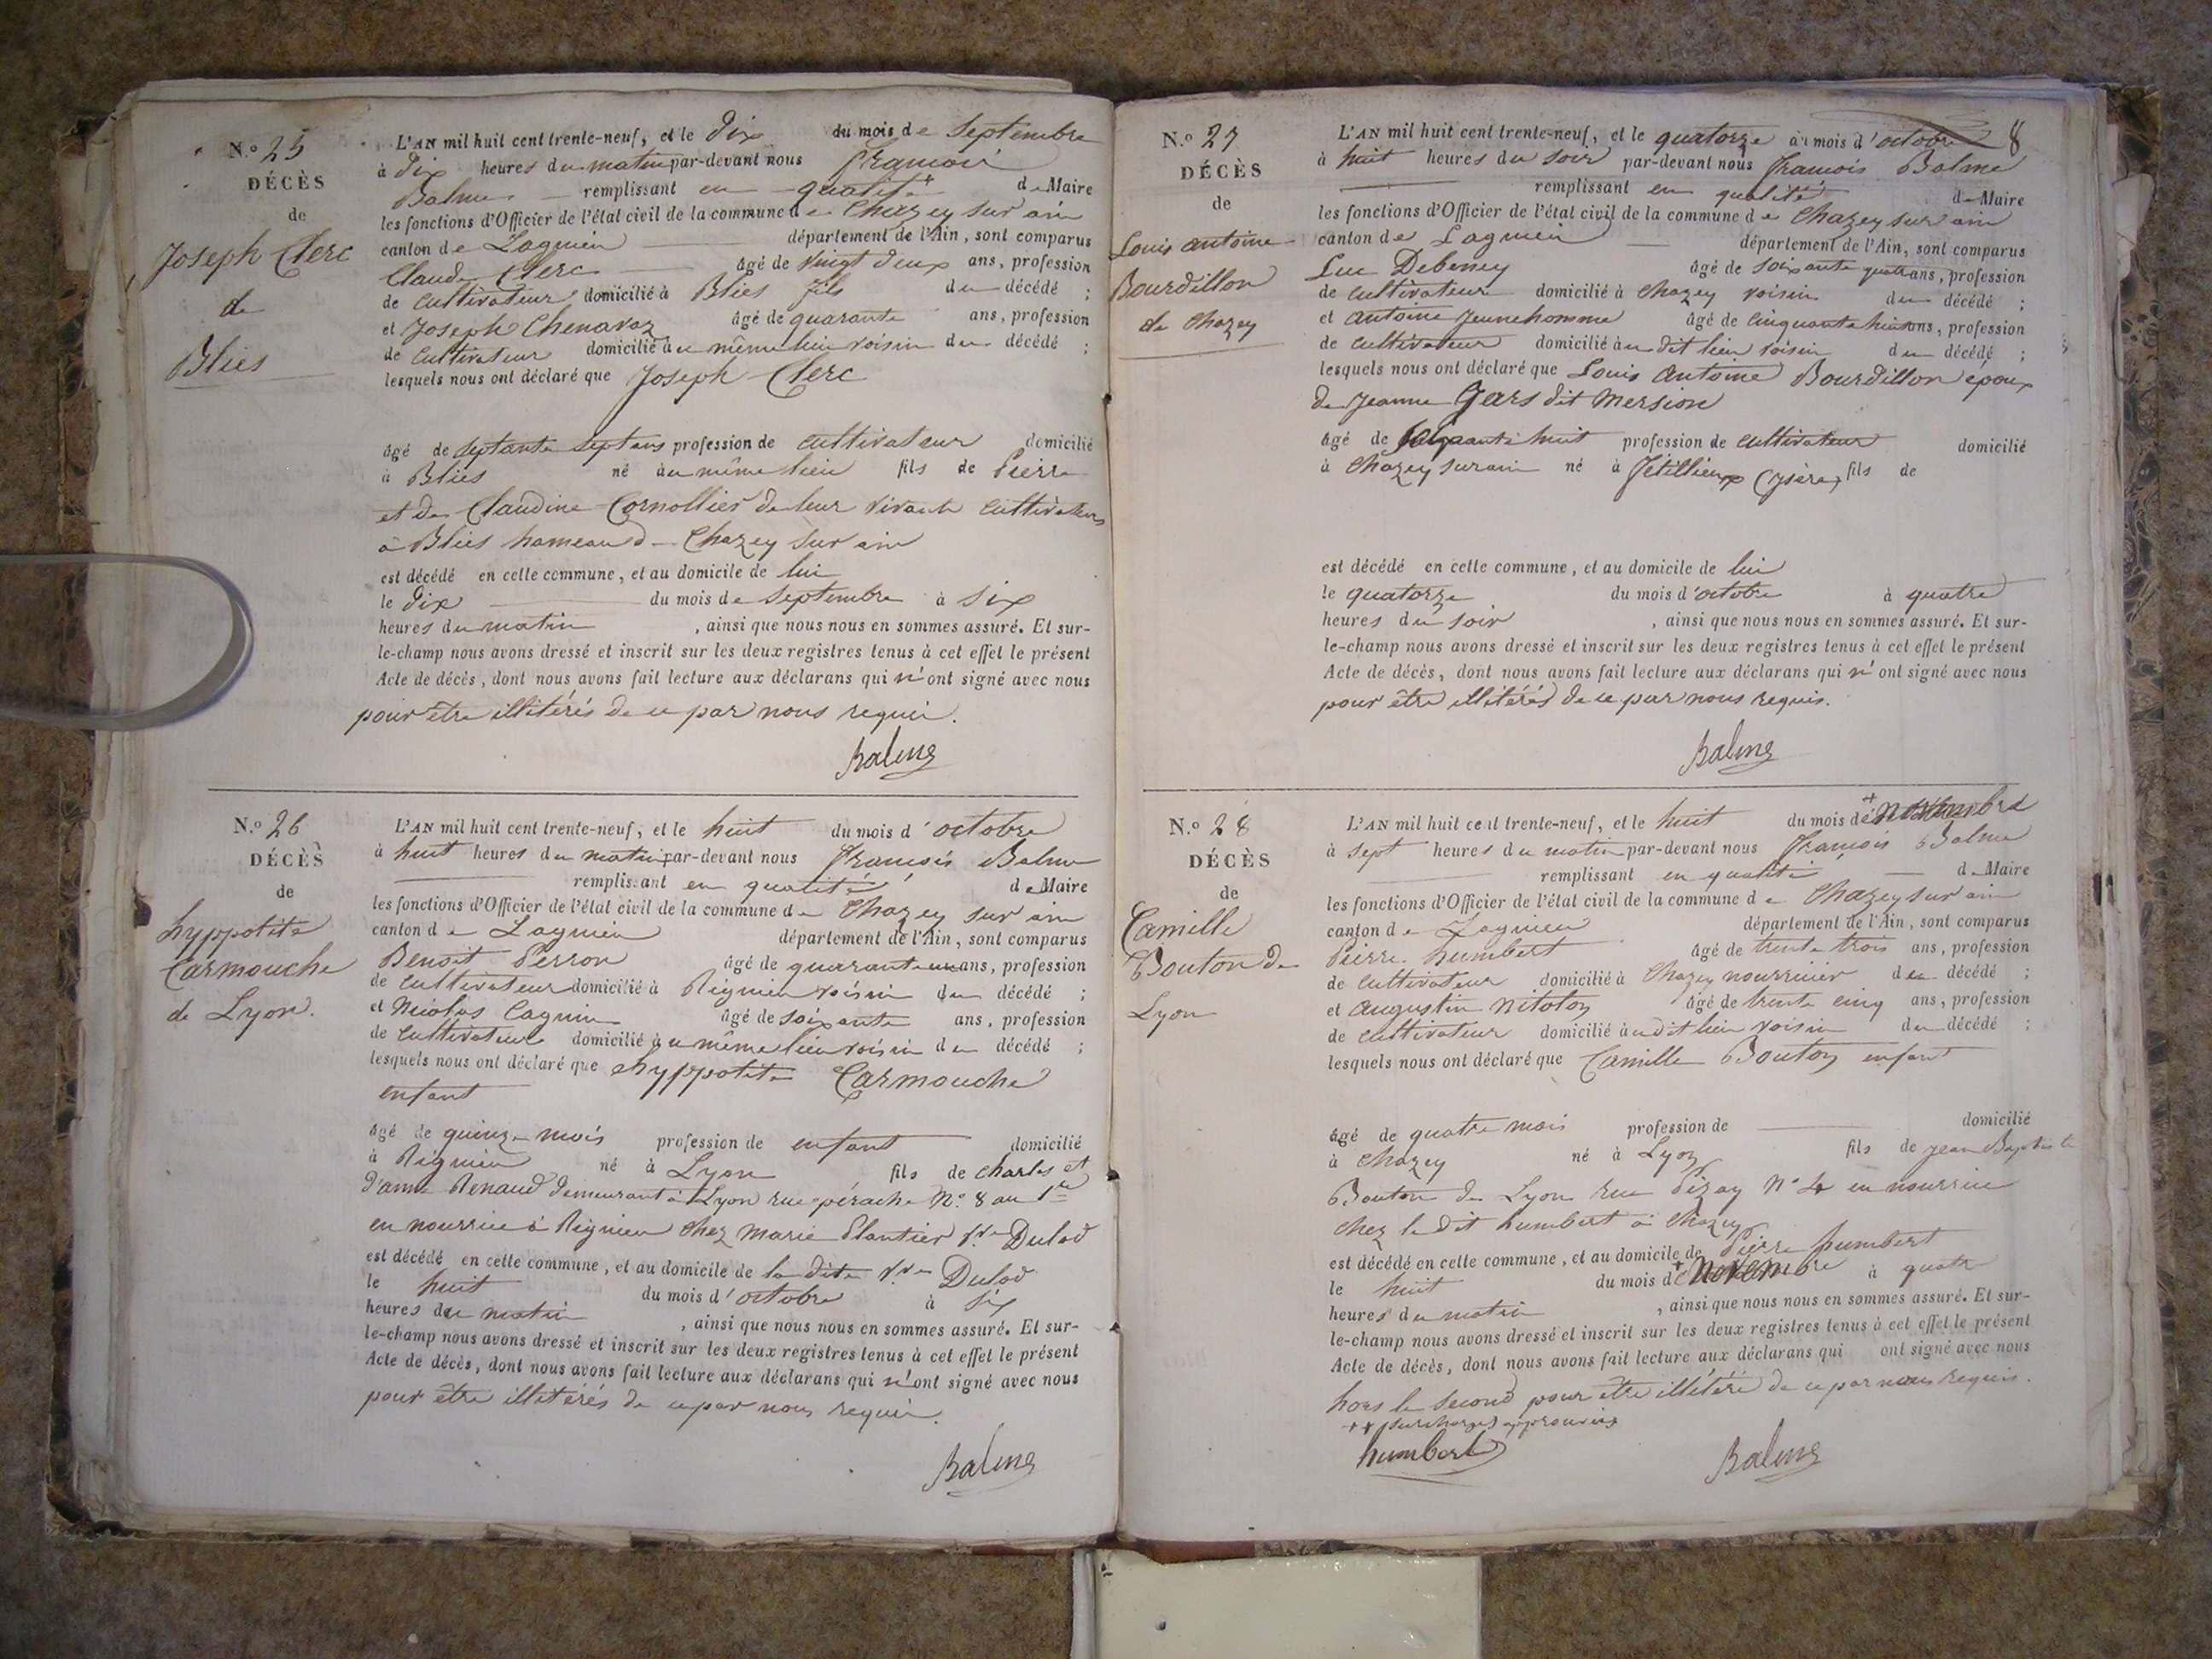 N.o 25
DÉCÈS
de
Joseph Clerc
de
Blies
L'AN mil huit cent trente-neuf, et le dix du mois de Septembre
à dix heures du matin par-devant nous françois
Balme remplissant en qualité de Maire
les fonctions d'Officier de l'état civil de la commune de Chazey sur ain
canton de Lagnieu département de l'Ain, sont comparus
Claude Clerc âgé de vingt deux ans, profession
de cultivateur domicilié à Blies fils du décédé ;
et Joseph Chenavaz âgé de quarante ans, profession
de cultivateur domicilié au même lieu voisin du décédé ;
lesquels nous ont déclaré que Joseph Clerc
âgé de septante sept ans profession de cultivateur domicilié
à Blies né au même lieu fils de Pierre
et de Claudine Cornollier de leur vivant cultivateurs
à Blies hameau d Chazey sur ain
est décédé en cette commune, et au domicile de lui
le dix du mois de Septembre à six
heures du matin , ainsi que nous nous en sommes assuré. Et sur-
le-champ nous avons dressé et inscrit sur les deux registres tenus à cet effet le présent
Acte de décès, dont nous avons fait lecture aux déclarans qui n'ont signé avec nous
pour être illitérés de ce par nous requis.
Balme
N.o 26
DÉCÈS
de
hyppolite
Carmouche
de Lyon.
L'AN mil huit cent trente-neuf, et le huit du mois d'octobre
à huit heures du matin par-devant nous françois Balme
remplissant en qualité de Maire
les fonctions d'Officier de l'état civil de la commune de Chazey sur ain
canton de Lagnieu département de l'Ain, sont comparus
Benoit Perron âgé de quarante un ans, profession
de cultivateur domicilié à Rignieu voisin du décédé ;
et Nicolas Cagnin âgé de soixante ans, profession
de cultivateur domicilié au même lieu voisin du décédé ;
lesquels nous ont déclaré que hyppolite Carmouche
enfant
âgé de quinze mois profession de enfant domicilié
à Rignieu né à Lyon fils de Charles et
d'anne Renaud demeurant à Lyon rue pérache N.o 8 au 1er
en nourrice à Rignieu chez marie Plantier Vve Dulod
est décédé en cette commune, et au domicile de la dite Vve Dulod
le huit du mois d'octobre à six
heures du matin , ainsi que nous nous en sommes assuré. Et sur-
le-champ nous avons dressé et inscrit sur les deux registres tenus à cet effet le présent
Acte de décès, dont nous avons fait lecture aux déclarans qui n'ont signé avec nous
pour être illitérés de ce par nous requis.
Balme
8
N.o 27
DÉCÈS
de
Louis antoine
Bourdillon
de Chazey
L'AN mil huit cent trente-neuf, et le quatorze du mois d'octobre
à huit heures du soir par-devant nous françois Balme
remplissant en qualité de Maire
les fonctions d'Officier de l'état civil de la commune de Chazey sur ain
canton de Lagnieu département de l'Ain, sont comparus
Luc Debeney âgé de soixante quatre ans, profession
de cultivateur domicilié à Chazey voisin du décédé ;
et antoine Jeunehomme âgé de cinquante huit ans, profession
de cultivateur domicilié au dit lieu voisin du décédé ;
lesquels nous ont déclaré que Louis antoine Bourdillon époux
de Jeanne Gars dit mersion
âgé de huit profession de cultivateur domicilié
à Chazey sur ain né à (Isère) fils de
est décédé en cette commune, et au domicile de lui
le quatorze du mois d'octobre à quatre
heures du soir , ainsi que nous nous en sommes assuré. Et sur-
le-champ nous avons dressé et inscrit sur les deux registres tenus à cet effet le présent
Acte de décès, dont nous avons fait lecture aux déclarans qui n'ont signé avec nous
pour être illitérés de ce par nous requis.
Balme
N.o 28
DÉCÈS
de
Camille
Bouton de
Lyon
L'AN mil huit cent trente-neuf, et le huit du mois de + Novembre
à sept heures du matin par-devant nous françois Balme
remplissant en qualité de Maire
les fonctions d'Officier de l'état civil de la commune de Chazey sur ain
canton de Lagnieu département de l'Ain, sont comparus
Pierre humbert âgé de trente trois ans, profession
de cultivateur domicilié à Chazey nourricier du décédé ;
et augustin Nitoloz âgé de trente cinq ans, profession
de cultivateur domicilié au dit lieu voisin du décédé ;
lesquels nous ont déclaré que Camille Bouton enfant
âgé de quatre mois profession de domicilié
à Chazey né à Lyon fils de jean Baptiste
Bouton de Lyon rue Pizay N° 4 en nourrice
chez le dit humbert à Chazey
est décédé en cette commune, et au domicile de Pierre humbert
le huit du mois de + Novembre à quatre
heures du matin , ainsi que nous nous en sommes assuré. Et sur-
le-champ nous avons dressé et inscrit sur les deux registres tenus à cet effet le présent
Acte de décès, dont nous avons fait lecture aux déclarans qui ont signé avec nous
hors le second pour être illitéré de ce par nous requis.
++ surcharges approuvées
humbert Balme